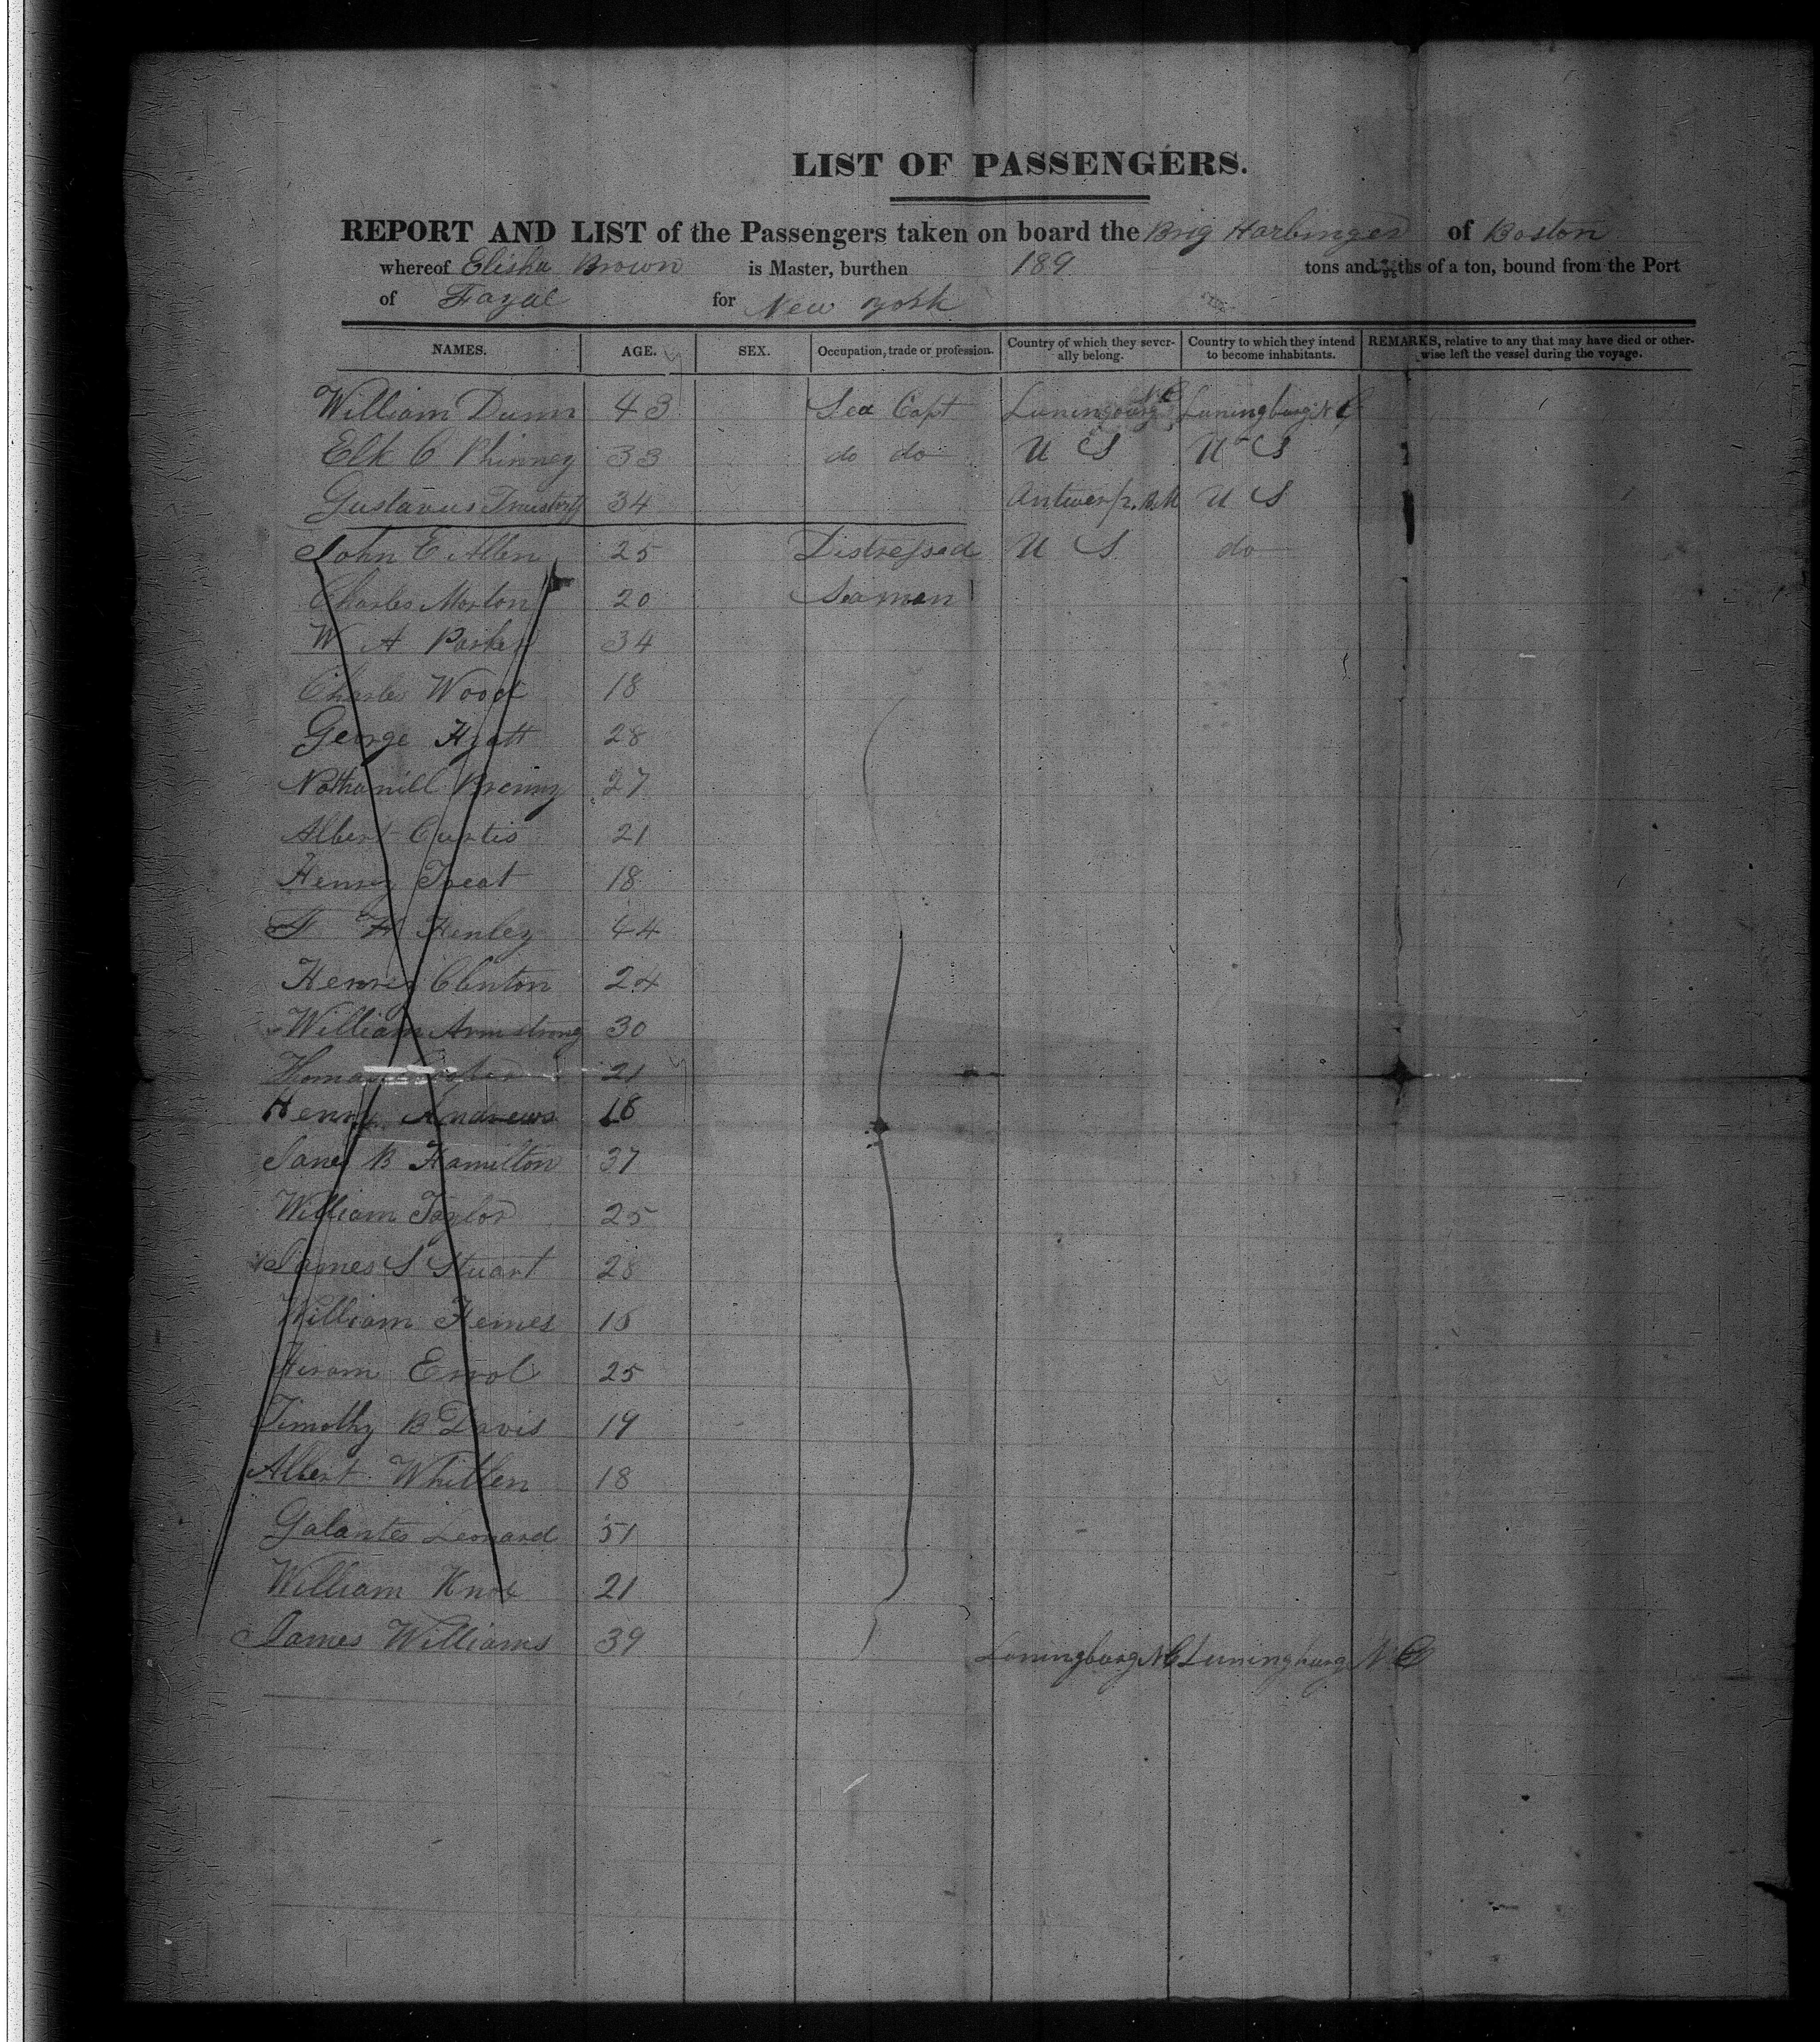 LIST OF PASSENGERS.
REPORT AND LIST of the Passengers taken on board the Brig Harbinger of Boston
whereof Elisha Brown is Master, burthen 189 tons and ths of a ton, bound from the Port
of Fayal for New York
NAMES. AGE. SEX. Occupation, trade or profession. Country of which they severally belong. Country to which they intend to become inhabitants. REMARKS, relative to any that may have died or otherwise left the vessel during the voyage.
William Dunn 43 Sea Capt Luningburg N C Luningburg N C
Elk C Phinney 33 do do U S U S
Gustavus 34 Antwerp. U S
John E. Allen 25 Distressed U S do
Charles Morton 20 Seamen
W A Parker 34
Charles Wood 18
George Hyatt 28
Nathaniell 27
Albert Curtis 21
Henry Treat 18
F H Henley 44
Henry Clinton 24
William Armstrong 30
Thomas 21
Henry Andrews 18
James B Hamilton 37
William Taylor 25
James S Stuart 28
William 18
Hiram Errol 25
Timothy B Davis 19
Albert Whitten 18
Galantes Leonard 51
William Knox 21
James Williams 39 Luningburg N C Luningburg N C